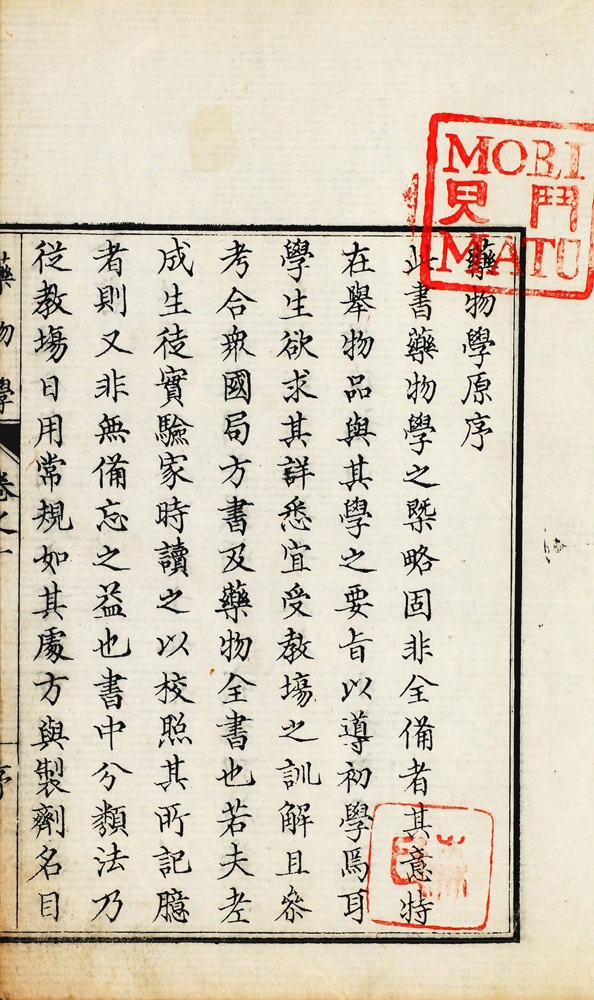 MORI
MATU
藥物學原序
此書藥物學之槩略固非全備者其意特
在舉物品與其學之要旨以導初學焉耳
學生欲求其詳悉宜受教塲之訓解且參
考合衆國局方書及藥物全書也若夫老
成生徒實驗家時讀之以校照其所記臆
者則又非無備忘之益也書中分類法乃
從教塲日用常規如其處方與製劑名目
藥物學 卷之一 序